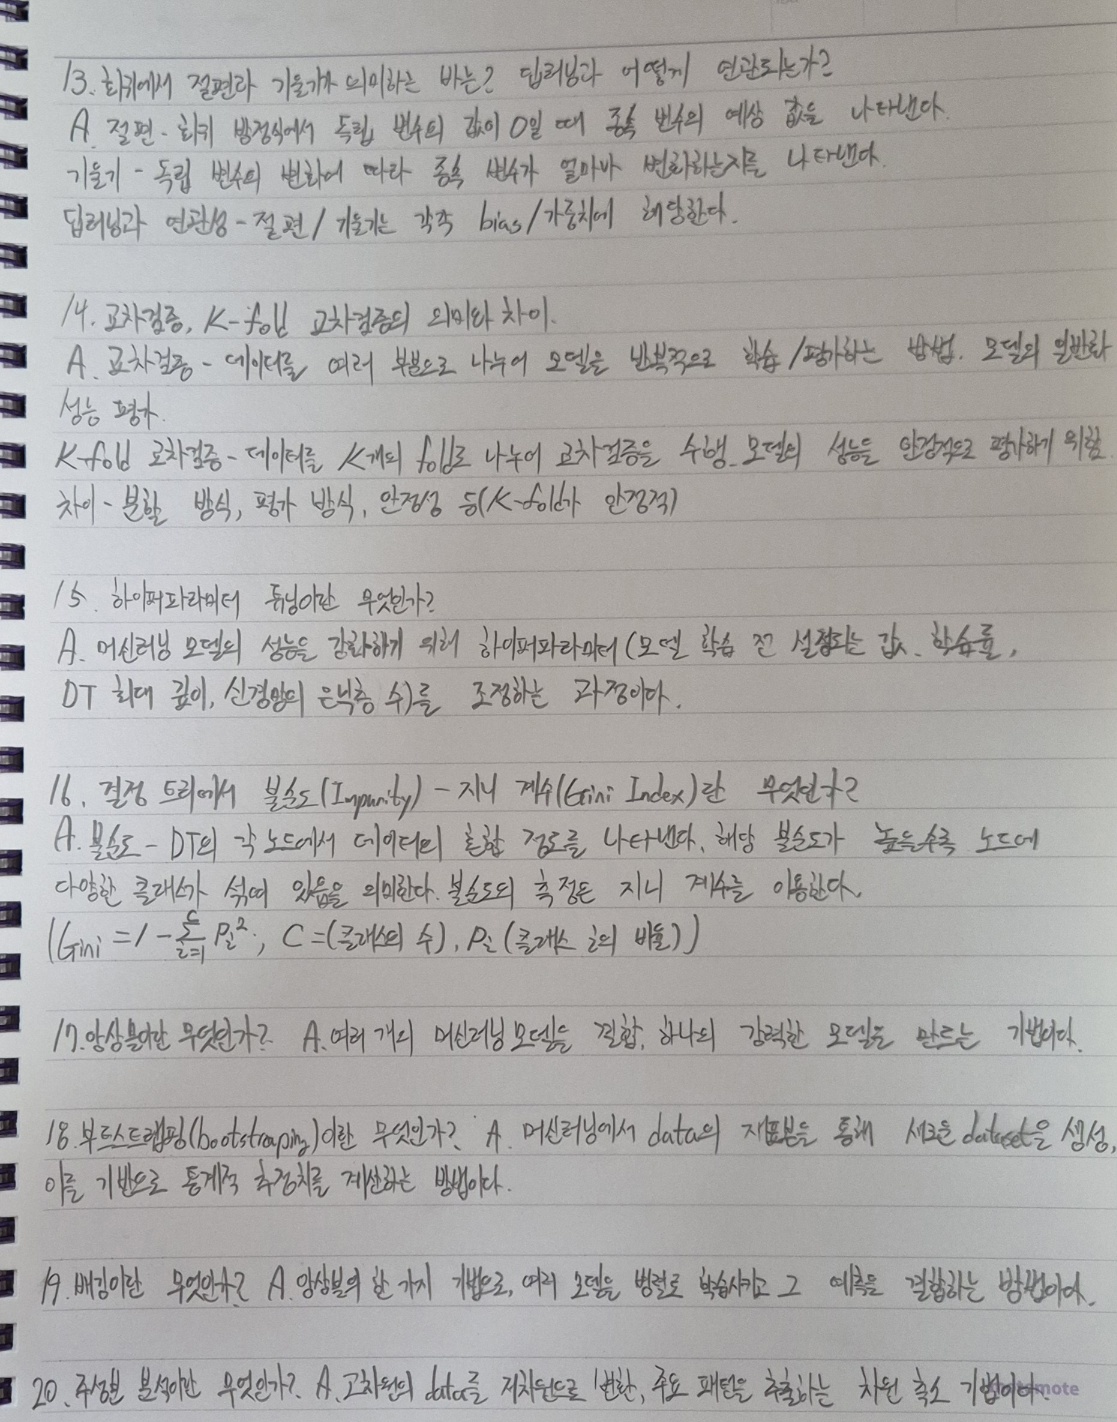 13. 회귀에서 절편과 기울기가 의미하는 바는? 딥러닝과 어떻게 연관되는가?
A. 절편 - 회귀 방정식에서 독립 변수의 값이 0일 때 종속 변수의 예상 값을 나타낸다.
기울기 - 독립 변수의 변화에 따라 종속 변수가 얼마나 변화하는지를 나타낸다.
딥러닝과 연관성 - 절편/기울기는 각각 bias/가중치에 해당한다.
14. 교차검증, K-fold 교차검증의 의미와 차이.
A. 교차검증 - 데이터를 여러 부분으로 나누어 모델을 반복적으로 학습/평가하는 방법. 모델의 일반화
성능 평가.
K-fold 교차검증 - 데이터를 K개의 fold로 나누어 교차검증을 수행. 모델의 성능을 안정적으로 평가하기 위함.
차이 - 분할 방식, 평가 방식, 안정성 등(K-fold가 안정적)
15. 하이퍼파라미터 튜닝이란 무엇인가?
A. 머신러닝 모델의 성능을 강화하기 위해 하이퍼파라미터(모델 학습 전 설정되는 값. 학습률,
DT 최대 깊이, 신경망의 은닉층 수)를 조정하는 과정이다.
16. 결정 트리에서 불순도(Impurity) - 지니 계수(Gini Index)란 무엇인가?
A. 불순도 - DT의 각 노드에서 데이터의 혼합 정도를 나타낸다. 해당 불순도가 높을수록 노드에
다양한 클래스가 섞여 있음을 의미한다. 불순도의 측정은 지니 계수를 이용한다.
(Gini = 1 - Σ_{i=1}^{C} Pi², C = (클래스의 수), Pi (클래스 i의 비율))
17. 앙상블이란 무엇인가? A. 여러 개의 머신러닝 모델을 결합, 하나의 강력한 모델을 만드는 기법이다.
18. 부트스트랩핑(bootstraping)이란 무엇인가? A. 머신러닝에서 data의 재표본을 통해 새로운 dataset을 생성,
이를 기반으로 통계적 추정치를 계산하는 방법이다.
19. 배깅이란 무엇인가? A. 앙상블의 한 가지 기법으로, 여러 모델을 병렬로 학습시키고 그 예측을 결합하는 방법이다.
20. 주성분 분석이란 무엇인가? A. 고차원의 data를 저차원으로 변환, 주요 패턴을 추출하는 차원 축소 기법이다.